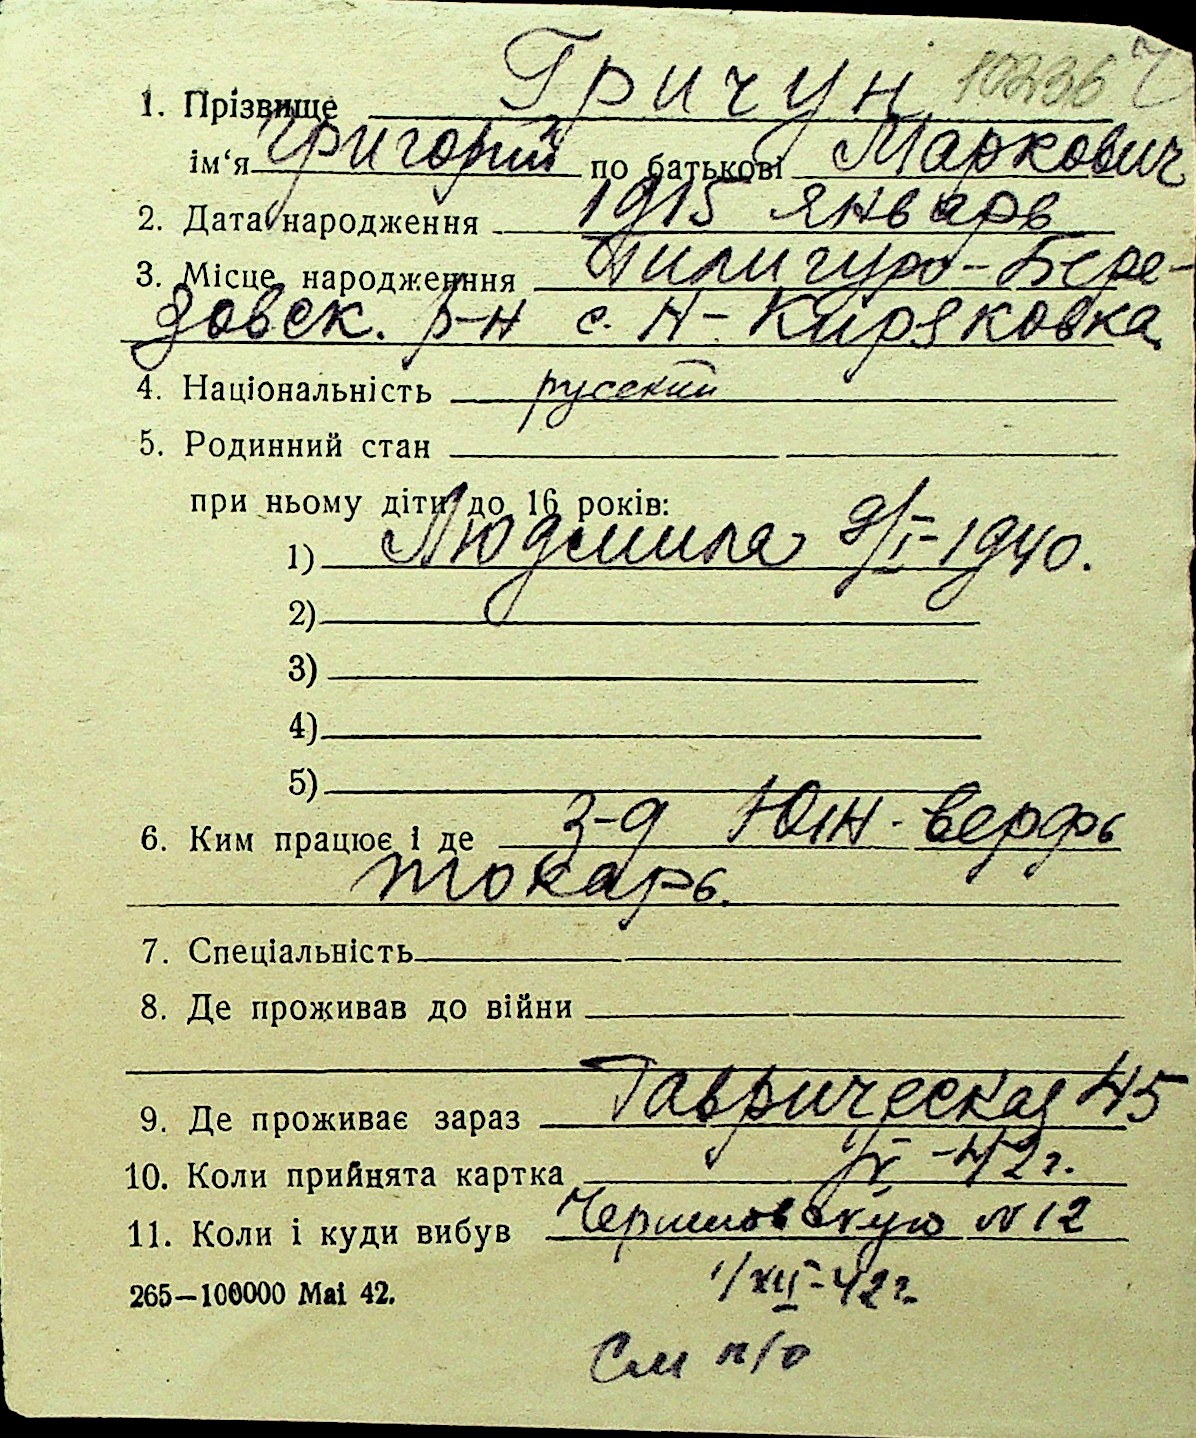 Гричун 10236
1. Прізвище
ім‘я Григорий по батькові Маркович
2. Дата народження 1915 январь
3. Місце народженння Тилигуро-Бере-
зовск. р-н с. Н-Киряковка
4. Національність русский
5. Родинний стан
при ньому діти до 16 років:
1) Людмила 9/I-1940.
2)
3)
4)
5)
6. Ким працює і де З-д Южн. верфь
токарь.
7. Спеціальність
8. Де проживав до війни
9. Де проживає зараз Таврическая 45
10. Коли прийнята картка -42г.
11. Коли і куди вибув №12
265—100000 Mai 42.
1/XII-42г.
См н/о